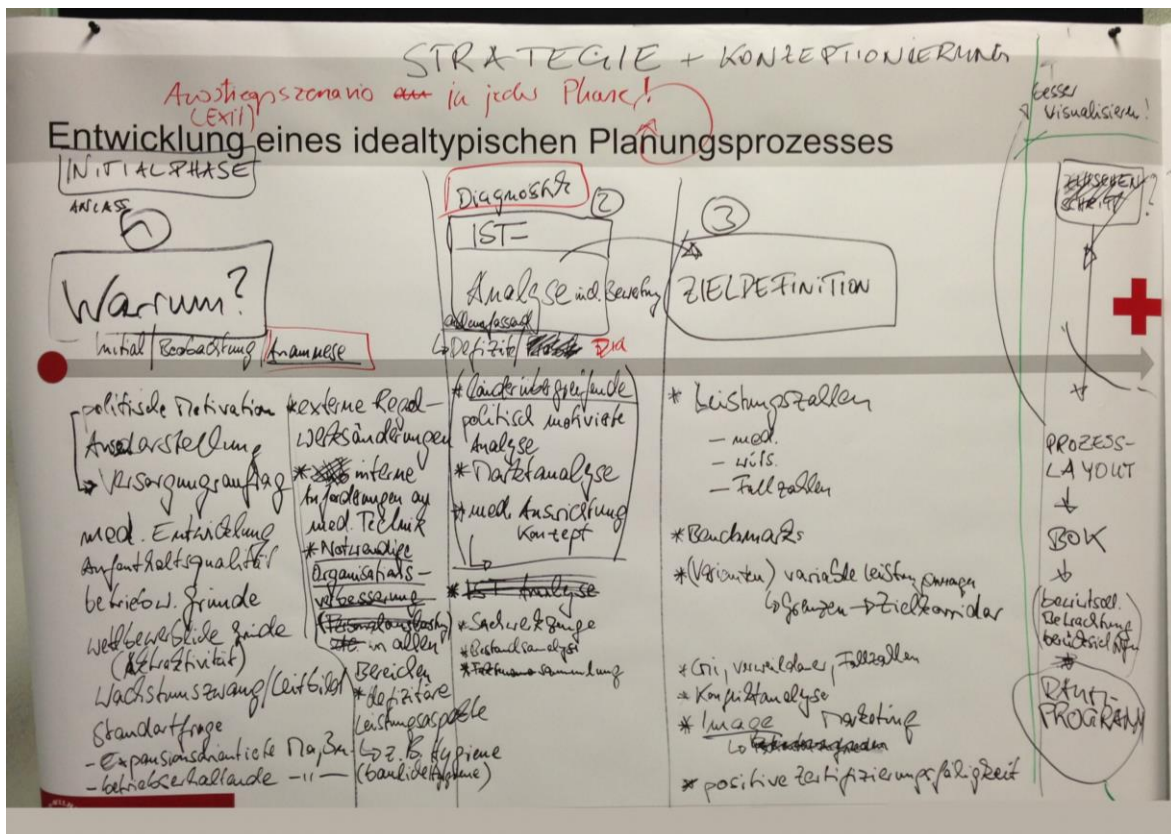 STRATEGIE + KONZEPTIONIERUNG
Ausstiegszenario in jeder Phase!
(EXIT)
besser
visualisieren!
Entwicklung eines idealtypischen Planungsprozesses
INITIALPHASE
ANLASS
1
Warum?
Initial / Beobachtung / Anamnese
politische Motivation
Versorgungsauftrag
med. Entwicklung
Aufenthaltsqualität
betriebsw. Gründe
wettbewerbliche Gründe
(Attraktivität)
Wachstumszwang / Leitbild
Standortfrage
- Expansionsorientierte
- betriebserhaltende -"-
*externe Regel-
werksänderungen
* interne
Anforderungen an
med. Technik
* Notwendige
Organisations-
verbesserung
in allen
Bereichen
* defizitäre
Leistungsaspekte
z.B. Hygiene
(bauliche Hygiene)
Diagnostik
2
IST-
Analyse incl. Bewertung
allumfassend
Defizite
* länderübergreifende
politisch motivierte
Analyse
* Marktanalyse
* med. Ausrichtung
Konzept
* IST Analyse
* Sachverständige
* Bestandsanalyse
3
ZIELDEFINITION
* Leistungszahlen
- med.
- wirts.
- Fallzahlen
* Benchmarks
* (Varianten) variable
Grenzen → Zielkorridor
* Cmi, verweildauer, Fallzahlen
* Konfliktanalyse
* Image Marketing
* positive Zertifizierungsfähigkeit
ZWISCHEN
SCHRITT ?
PROZESS-
LAYOUT
BOK
Betrachtung
berücksichtigen
RAUM-
PROGRAMM